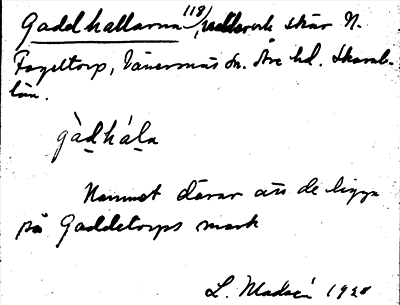 Gaddhallarna 118/, skär N.
Fogeltorp, Vänersnäs sn. Åse hd. Skarab.
län.
gàdhála
Namnet därav att de ligga
på Gaddetorps mark
L. Modin 1928